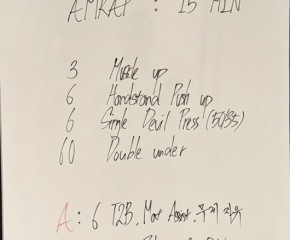 AMRAP : 15 MIN
3 Muscle up
6 Handstand Push up
6 Single Devil Press (50/35)
60 Double under
A : 6 T2B,